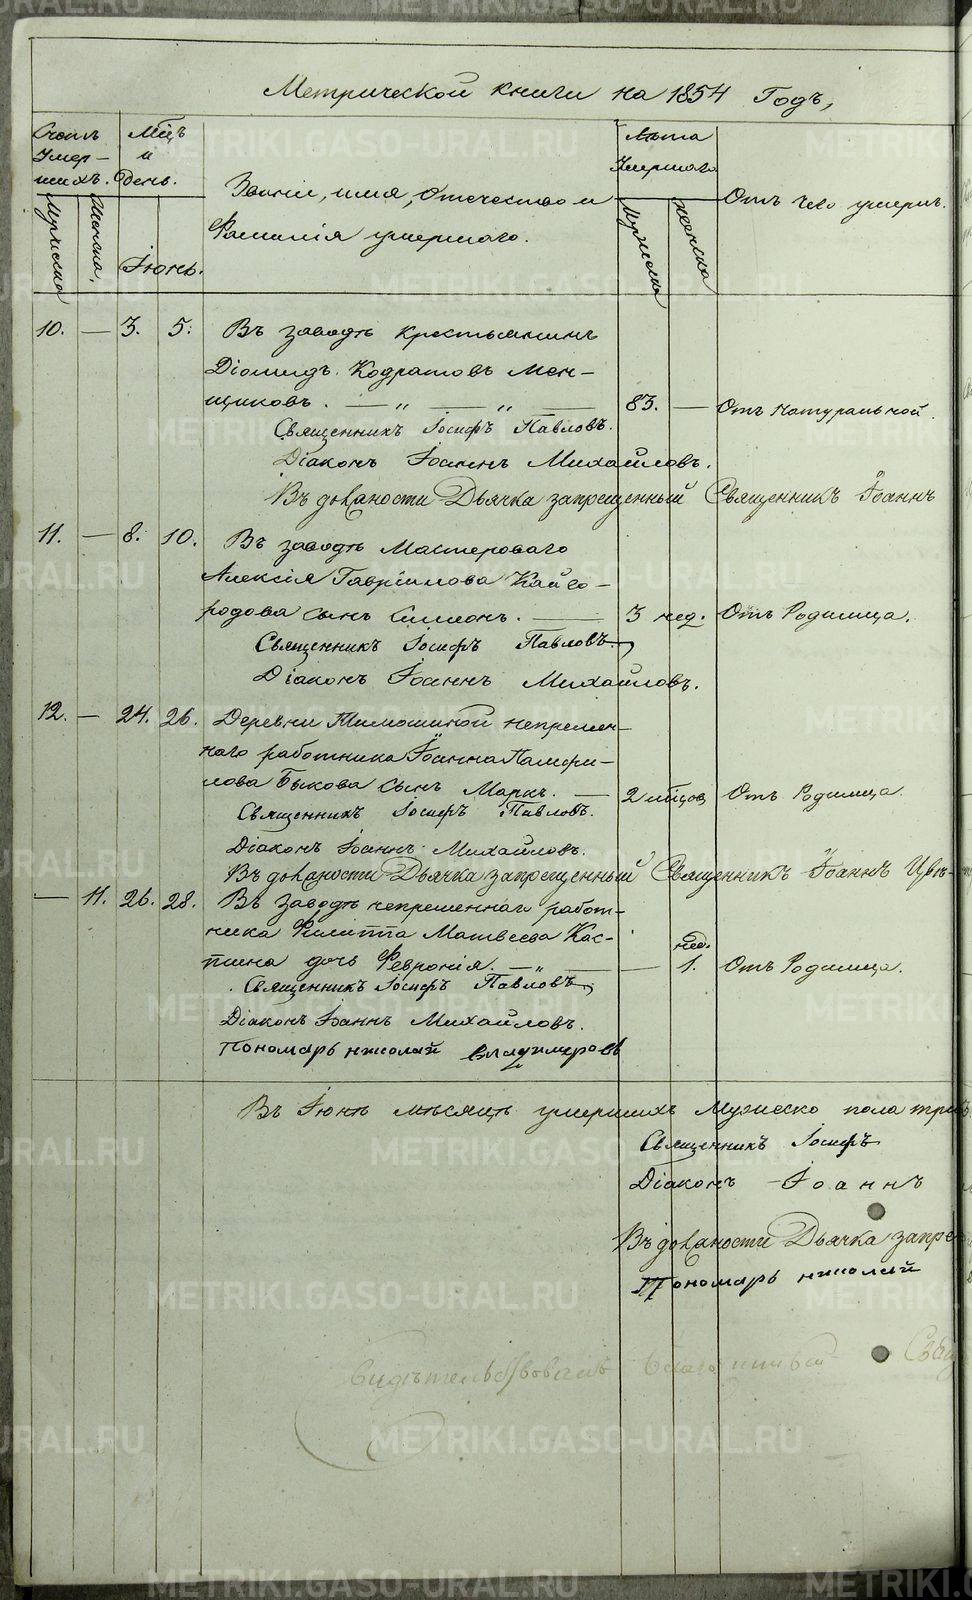 Метрической книги на 1854 Годъ,
Счетъ Умер- шихъ.
Мѣцъ и День.
Званіе, имя, Отечество и Фамилія умершаго.
Лѣта Умершаго
Отъ чего умеръ.
Мужеска
Женска,
Іюнь.
Мужеска
Женска
10. — 3. 5. Въ заводѣ крестьянинъ
Діомидъ Кодратовъ Мен-
щиковъ. — „ — „ — 83. — Отъ натуральной.
Священникъ Іосифъ Павловъ.
Діаконъ Іоаннъ Михайловъ.
Въ должности Дьячка запрещенный Священникъ Іоаннъ
11. — 8. 10. Въ заводѣ Мастероваго
Алексія Гавріилова Кайго-
родова сынъ Симеонъ. — 3 нед. Отъ Родимца.
Священникъ Іосифъ Павловъ
Діаконъ Іоаннъ Михайловъ.
12. — 24. 26. Деревни Тимошиной непремен-
наго работника Іоанна Памфи-
лова Быкова сынъ Маркъ. — 2 мѣсцов Отъ Родимца.
Священникъ Іосифъ Павловъ.
Діаконъ Іоаннъ Михайловъ.
Въ должности Дьячка запрещенный Священникъ Іоаннъ Цвѣ-
— 11. 26. 28. Въ Заводѣ непременнаго работ-
ника Филиппа Матвеева Кас-
пина дочь Февронія. — „ — — нед. 1. Отъ Родимца.
Священникъ Іосифъ Павловъ,
Діаконъ Іоаннъ Михайловъ.
Пономарь николай Владимеровъ
Въ Іюнѣ мѣсяцѣ умершихъ Мужеско пола три
Священникъ Іосифъ
Діаконъ Іоаннъ
Въ должности Дьячка запре
Пономарь николай
свидѣтельствовалъ
METRIKI.GASO-URAL.RU